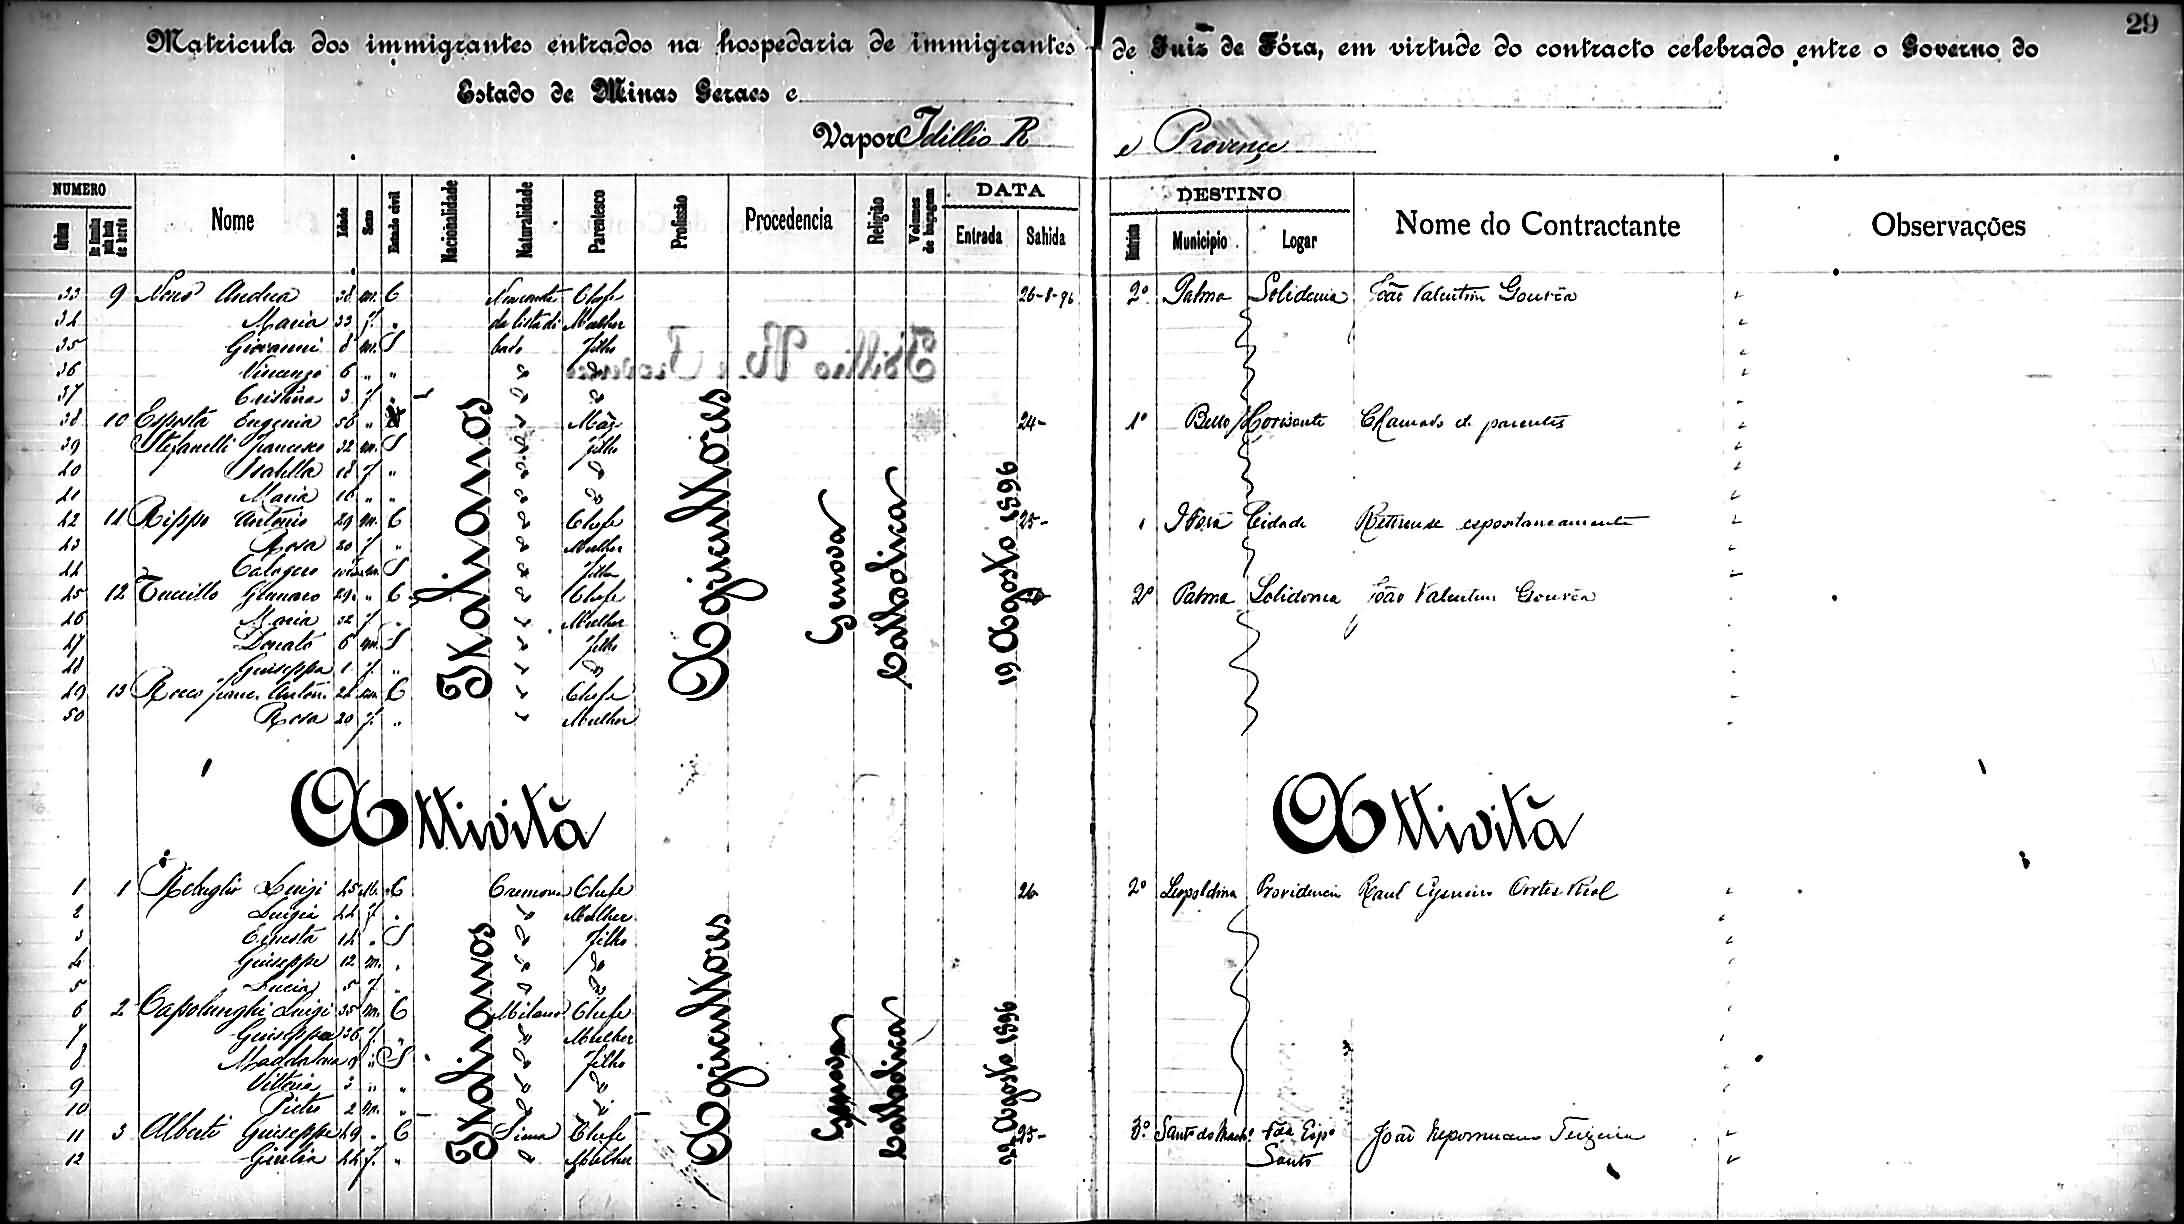 29
Matricula dos immigrantes entrados na hospedaria de immigrantes de Juiz de Fóra, em virtude do contracto celebrado entre o Governo do
Estado de Minas Geraes e
Vapor Idillio R e Provence
NUMERO DATA DESTINO
Ordem Nome Idade Sexo Estado civil Nacionalidade Naturalidade Parentesco Profissão Procedencia Religião Volumes de bagagem Entrada Sahida Districto Municipio Logar Nome do Contractante Observações
33 9 Andrea 38 m. C Chefe 26-8-96 2º Palma Solidonia João Valentim Gouvêa
34 Maria 33 f. " Mulher
35 Giovanni 8 m. S Filho
36 Vincenzo 6 " "
37 Cristina 3 f. "
38 10 Esposta Eugenia 56 " Mãe 24- 1º Bello Horisonte Chamado de parentes
39 Stefanelli Francesco 32 m. S Filho
40 Isabella 18 f. "
41 Maria 16 " "
42 11 Rippo Antonio 29 m. C Chefe 25- Cidade Retirou-se espontaneamente
43 Rosa 20 f. " Mulher
44 Calogero S Filho
45 12 Tuccillo Gennaro 29 " C Chefe 2º Palma Solidonia João Valentim Gouvêa
46 Maria 32 f. Mulher
47 Donato 6 m. S Filho
48 Giuseppa 1 f. "
49 13 Rocco Franc. Anton. 24 m. C Chefe
50 Rosa 20 f. " Mulher
Italianos Agricultores Genova Catholica 19 Agosto 1896
Attività Attività
1 1 Luigi 45 m. C Cremona Chefe 26 2º Leopoldina Providencia Raul Cortes Real
2 Luigia 44 f. Mulher
3 Ernesta 14 " S Filho
4 Giuseppe 12 m. "
5 Lucia 5 f. "
6 2 Capolunghi Luigi 35 m. C Milano Chefe
7 Giuseppa 36 f. " Mulher
8 Maddalena 9 " S Filho
9 Vittoria 3 " "
10 Pietro 2 m. "
11 3 Alberti Giuseppe 49 " C Chefe 25- 3º João Nepomuceno Teixeira
12 Giulia 44 f. " Mulher Santo
Italianos Agricultores Genova Catholica 22 Agosto 1896